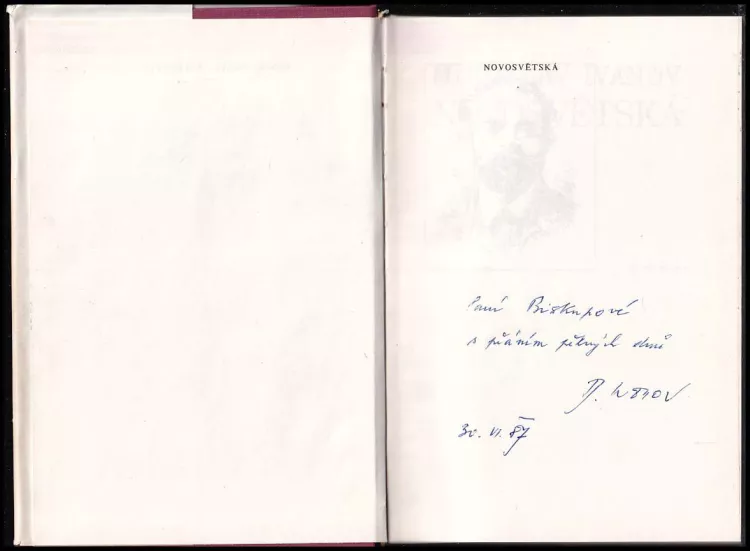 NOVOSVĚTSKÁ
Paní Biskupové
s přáním pěkných dnů
30. VI. 87